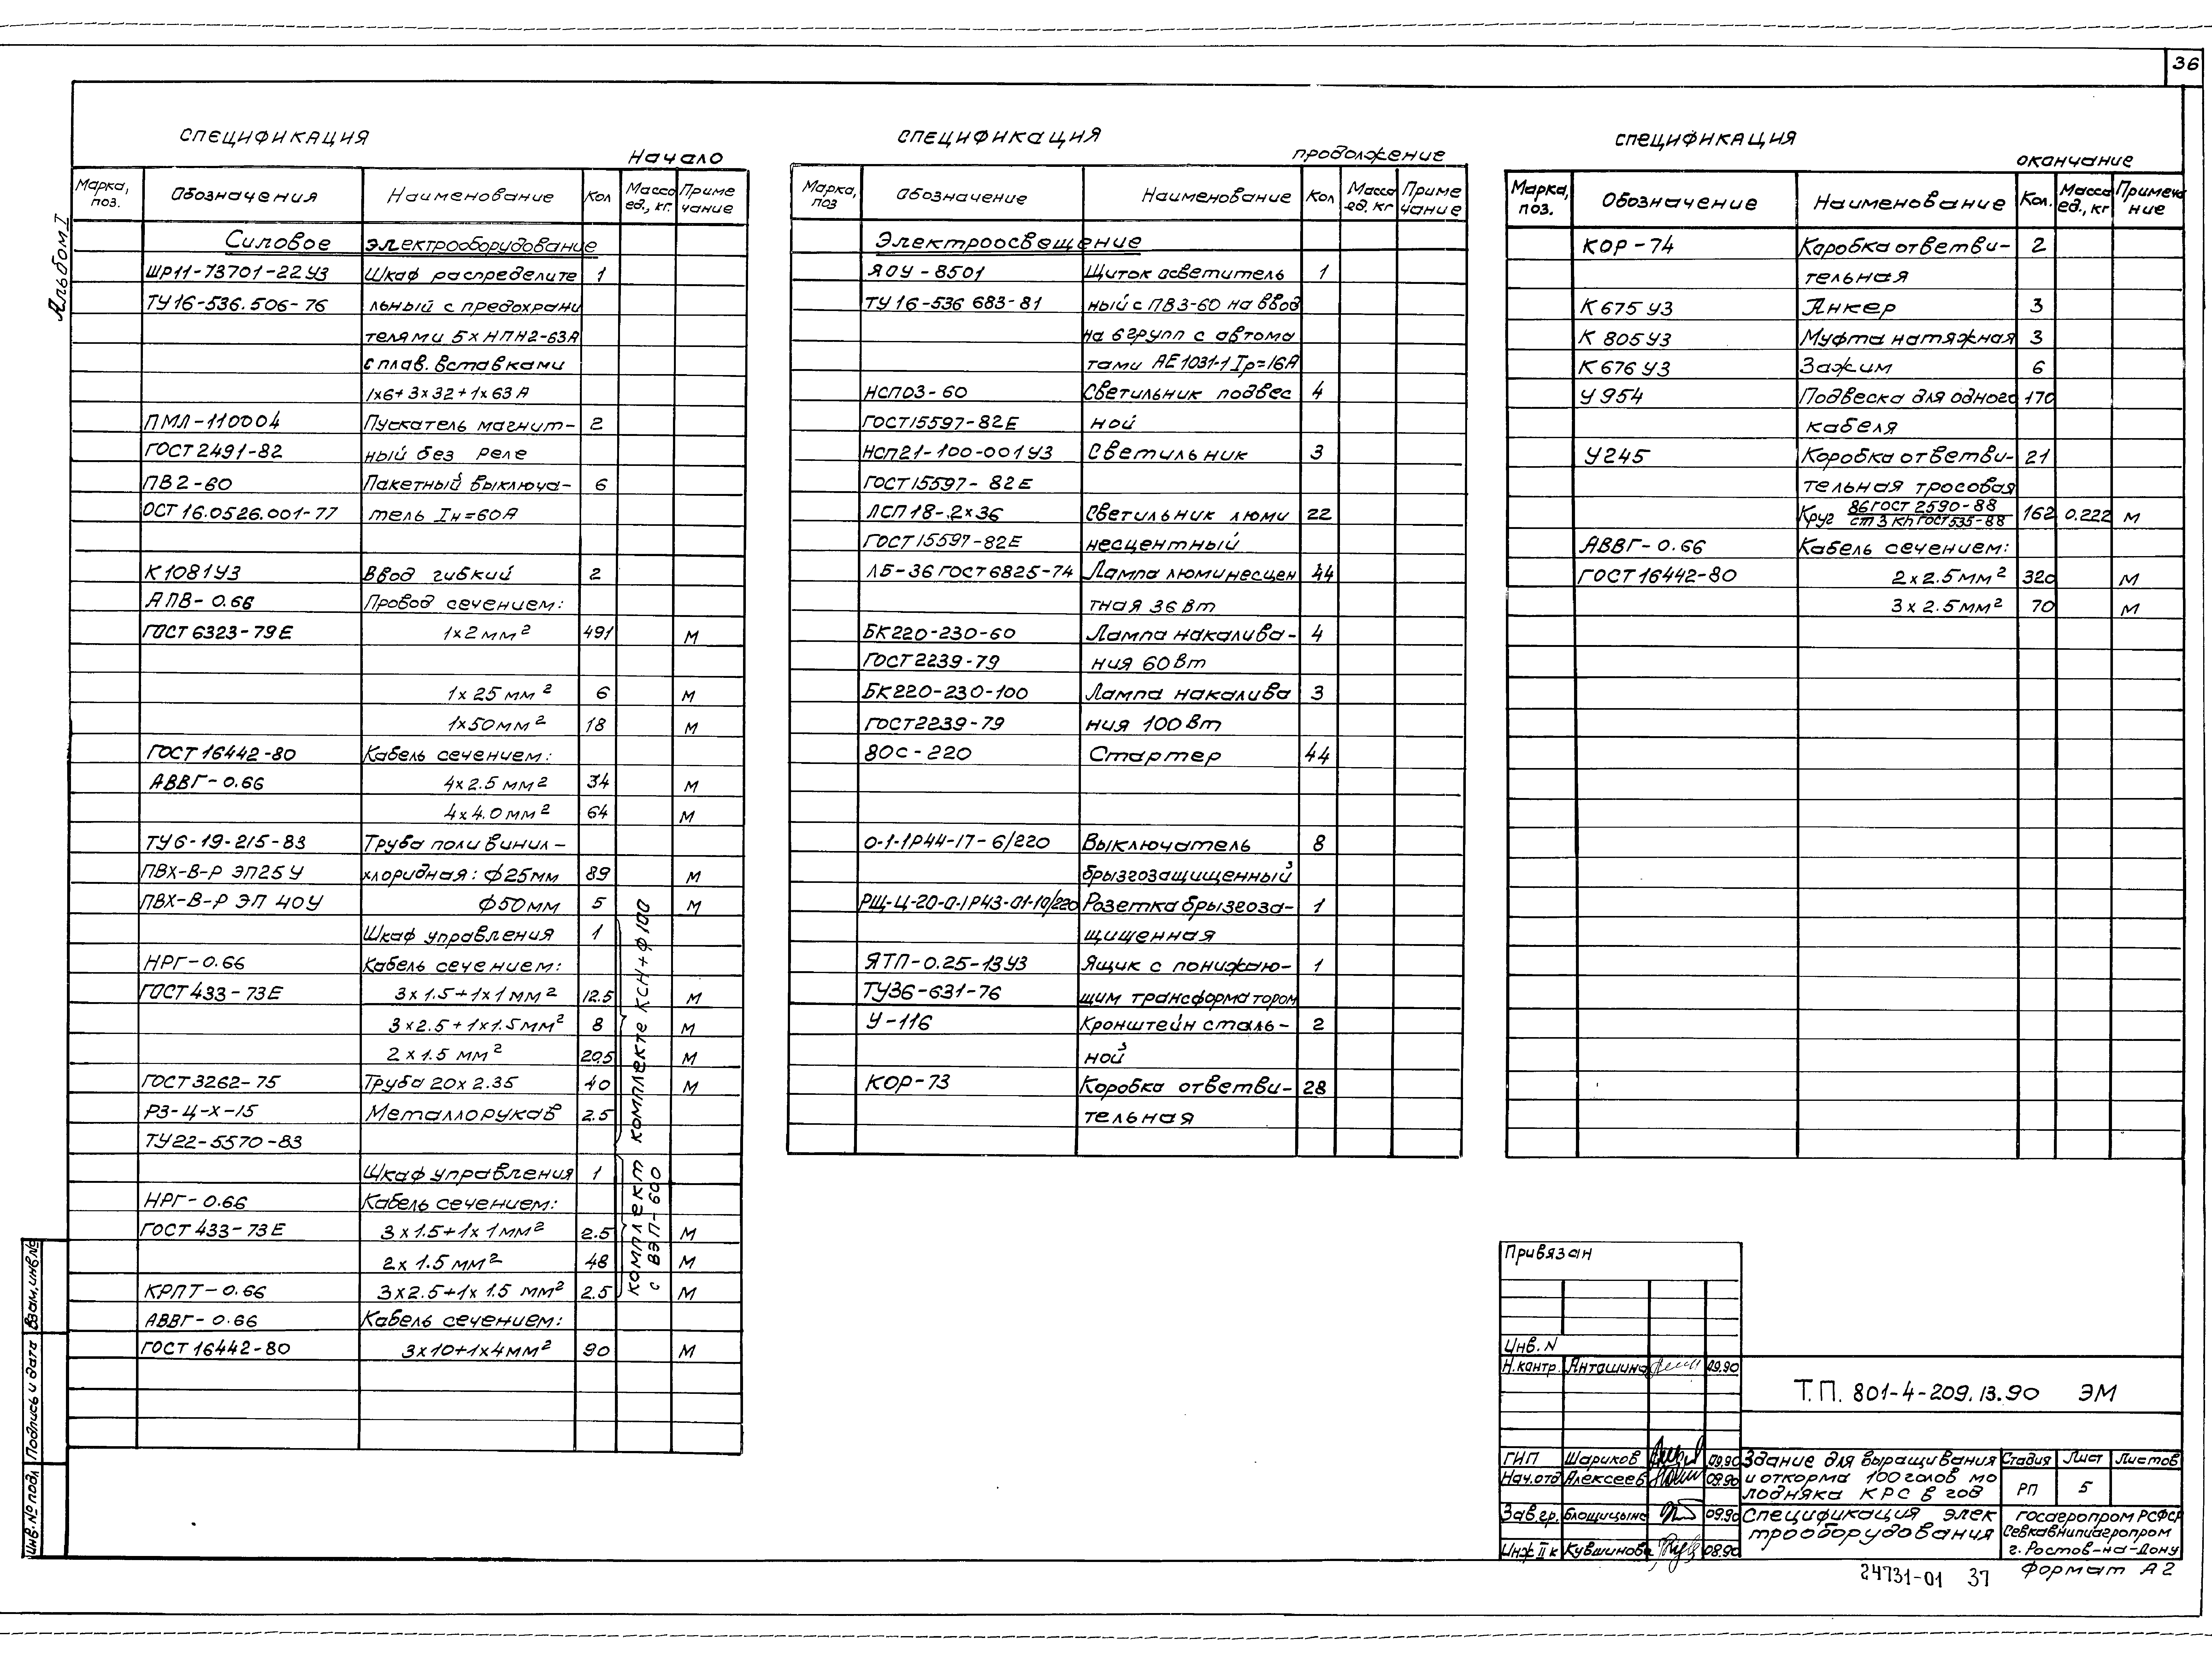 36
Альбом I
спецификация
Начало
Марка, поз. Обозначения Наименование Кол Масса ед., кг. Приме чание
Силовое электрооборудование
ШР11-73701-22У3 Шкаф распределите 1
ТУ16-536.506-76 льный с предохрани
телями 5хНПН2-63А
с плав. вставками
1х6+3х32+1х63А
ПМЛ-110004 Пускатель магнит- 2
ГОСТ 2491-82 ный без реле
ПВ2-60 Пакетный выключа- 6
ОСТ 16.0526.001-77 тель Iн=60А
К1081У3 Ввод гибкий 2
АПВ-0.66 Провод сечением:
ГОСТ 6323-79Е 1х2мм² 491 м
1х25мм² 6 м
1х50мм² 18 м
ГОСТ 16442-80 Кабель сечением:
АВВГ-0.66 4х2.5мм² 34 м
4х4.0мм² 64 м
ТУ6-19-215-83 Труба поливинил-
ПВХ-В-Р ЭП25У хлоридная: ф25мм 89 м
ПВХ-В-Р ЭП 40У ф50мм 5 м
Шкаф управления 1
НРГ-0.66 Кабель сечением:
ГОСТ 433-73Е 3х1.5+1х1мм² 12.5 м
3х2.5+1х1.5мм² 8 м
2х1.5 мм² 20.5 м
ГОСТ 3262-75 Труба 20х2.35 40 м
РЗ-Ц-Х-15 Металлорукав 2.5
ТУ22-5570-83
комплекте КСН+Ф100
Шкаф управления 1
НРГ-0.66 Кабель сечением:
ГОСТ 433-73Е 3х1.5+1х1мм² 2.5 м
2х1.5мм² 48 м
КРПТ-0.66 3х2.5+1х1.5 мм² 2.5 м
комплект
с ВЭП-600
АВВГ-0.66 Кабель сечением:
ГОСТ 16442-80 3х10+1х4мм² 90 м
спецификация
продолжение
Марка, поз Обозначение Наименование Кол Масса ед. кг Приме чание
Электроосвещение
ЯОУ-8501 Щиток осветитель 1
ТУ16-536 683-81 ный с ПВ3-60 на ввод
на 6 групп с автома
тами АЕ1031-1 Iр=16А
НСП03-60 Светильник подвес 4
ГОСТ15597-82Е ной
НСП21-100-001У3 Светильник 3
ГОСТ15597-82Е
ЛСП18-2х36 Светильник люми 22
ГОСТ15597-82Е несцентный
ЛБ-36 ГОСТ6825-74 Лампа люминесцен 44
тная 36 Вт
БК220-230-60 Лампа накалива- 4
ГОСТ2239-79 ния 60Вт
БК220-230-100 Лампа накалива 3
ГОСТ2239-79 ния 100Вт
80С-220 Стартер 44
0-1-IP44-17-6/220 Выключатель 8
брызгозащищенный
РЩ-Ц-20-0-IP43-01-10/220 Розетка брызгоза- 1
щищенная
ЯТП-0.25-13У3 Ящик с понижаю- 1
ТУ36-631-76 щим трансформатором
У-116 Кронштейн сталь- 2
ной
КОР-73 Коробка ответви- 28
тельная
спецификация
окончание
Марка, поз. Обозначение Наименование Кол. Масса ед., кг Примеча ние
КОР-74 Коробка ответви- 2
тельная
К675У3 Анкер 3
К805У3 Муфта натяжная 3
К676У3 Зажим 6
У954 Подвеска для одного 170
кабеля
У245 Коробка ответви- 21
тельная тросовая
Круг 86 ГОСТ 2590-88 / ст 3 кп ГОСТ 535-88 162 0.222 м
АВВГ-0.66 Кабель сечением:
ГОСТ 16442-80 2х2.5мм² 320 м
3х2.5мм² 70 м
Взам. инв.№
Подпись и дата
Инв.№ подл
Привязан
Инв. N
Н.контр. Анташина 09.90
Т.П. 801-4-209.13.90 ЭМ
ГИП Шариков 09.90
Нач.отд Алексеев 09.90
Зав.гр. Блощицына 09.90
Инж II к Кувшинова 08.90
Здание для выращивания
и откорма 100голов мо
лодняка КРС в год
Стадия Лист Листов
РП 5
Спецификация элек
трооборудования
госагропром РСФСР
Севкавнипиагропром
г. Ростов-на-Дону
24731-01 37 Формат А2